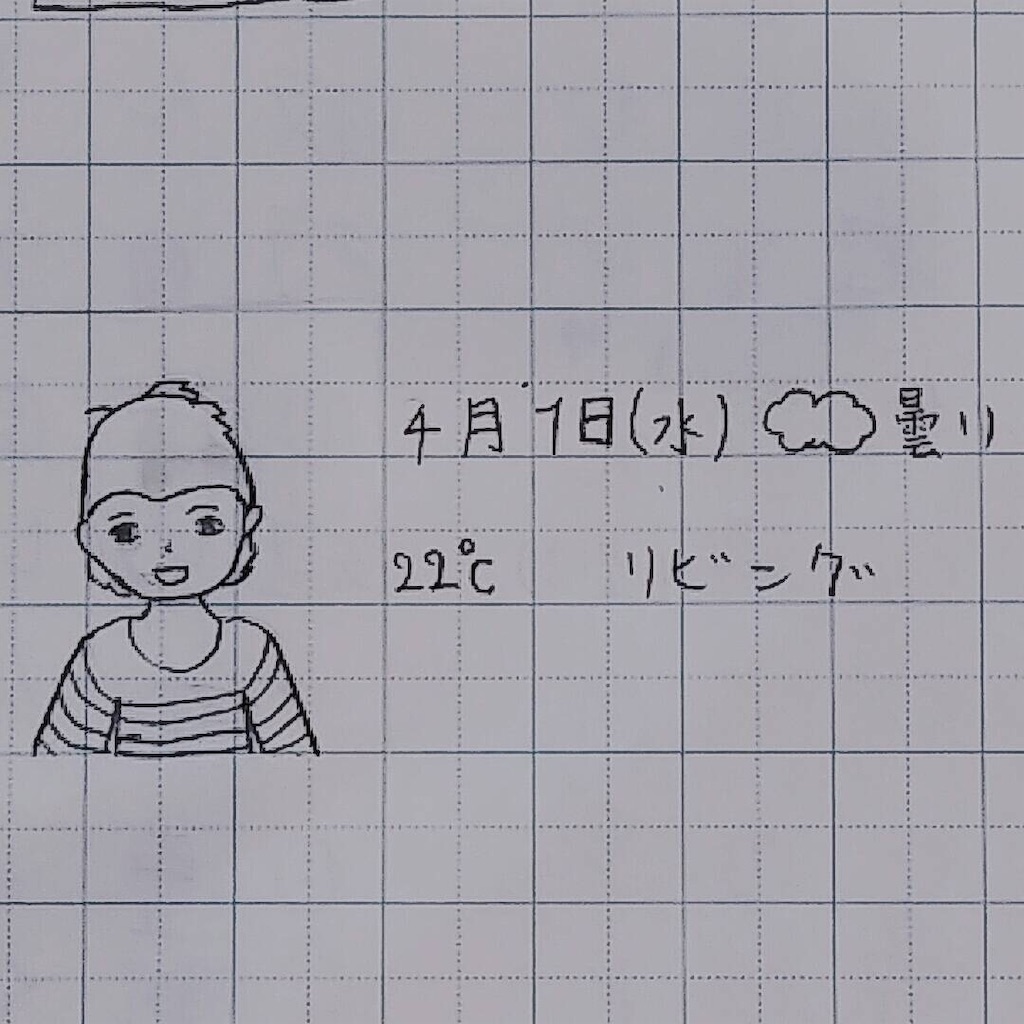 4月7日(水) 曇り
22℃ リビング